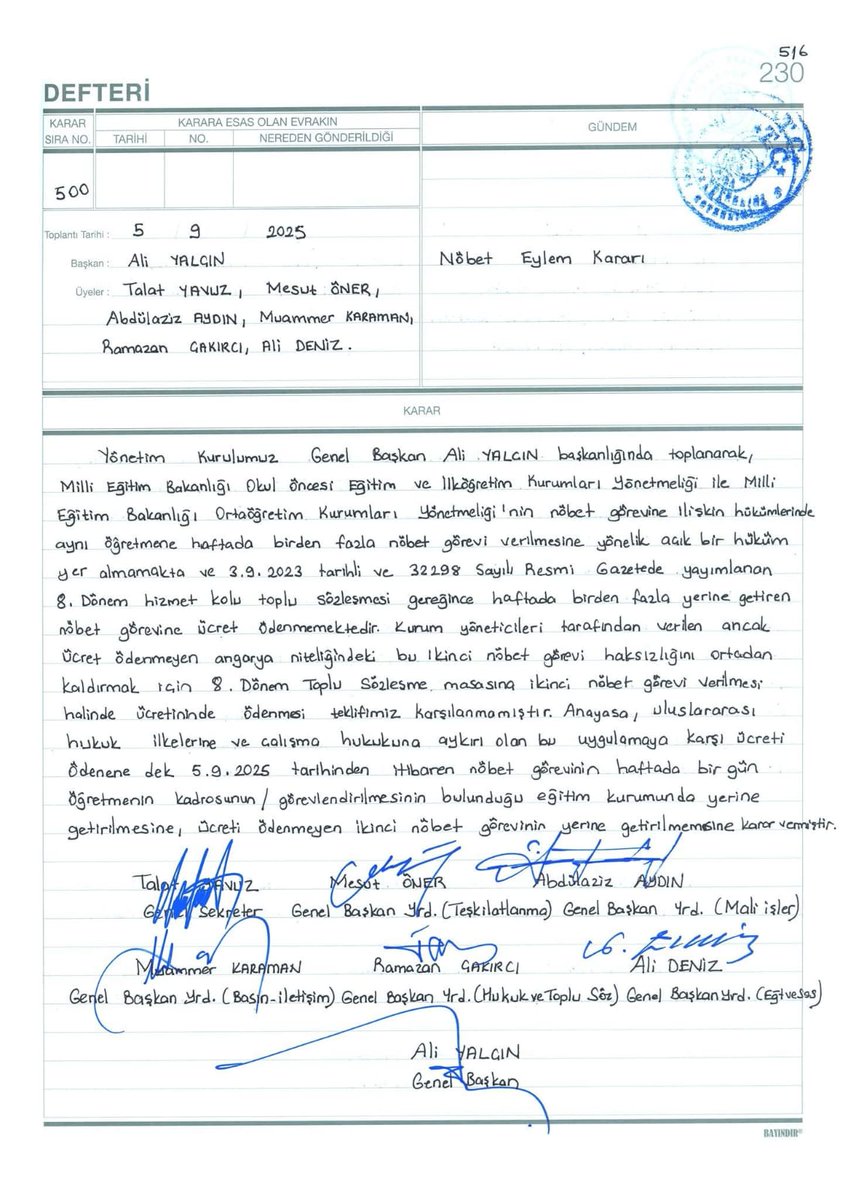 516
230
DEFTERİ
KARAR SIRA NO.
KARARA ESAS OLAN EVRAKIN
TARİHİ NO. NEREDEN GÖNDERİLDİĞİ
GÜNDEM
500
Toplantı Tarihi : 5 9 2025
Başkan : Ali YALÇIN
Nöbet Eylem Kararı
Üyeler : Talat YAVUZ, Mesut ÖNER,
Abdülaziz AYDIN, Muammer KARAMAN,
Ramazan ÇAKIRCI, Ali DENİZ.
KARAR
Yönetim Kurulumuz Genel Başkan Ali YALÇIN başkanlığında toplanarak,
Milli Eğitim Bakanlığı Okul Öncesi Eğitim ve İlköğretim Kurumları Yönetmeliği ile Milli
Eğitim Bakanlığı Ortaöğretim Kurumları Yönetmeliği'nin nöbet görevine ilişkin hükümlerinde
aynı öğretmene haftada birden fazla nöbet görevi verilmesine yönelik açık bir hüküm
yer almamakta ve 3.9.2023 tarihli ve 32298 Sayılı Resmi Gazetede yayımlanan
8. Dönem hizmet kolu toplu sözleşmesi gereğince haftada birden fazla yerine getiren
nöbet görevine ücret ödenmemektedir. Kurum yöneticileri tarafından verilen ancak
ücret ödenmeyen angarya niteliğindeki bu ikinci nöbet görevi haksızlığını ortadan
kaldırmak için 8. Dönem Toplu Sözleşme masasına ikinci nöbet görevi verilmesi
halinde ücretininde ödenmesi teklifimiz karşılanmamıştır. Anayasa, uluslararası
hukuk ilkelerine ve çalışma hukukuna aykırı olan bu uygulamaya karşı ücreti
ödenene dek 5.9.2025 tarihinden itibaren nöbet görevinin haftada bir gün
öğretmenin kadrosunun / görevlendirilmesinin bulunduğu eğitim kurumunda yerine
getirilmesine, ücreti ödenmeyen ikinci nöbet görevinin yerine getirilmemesine karar vermiştir.
Talat YAVUZ Mesut ÖNER Abdülaziz AYDIN
Genel Sekreter Genel Başkan Yrd. (Teşkilatlanma) Genel Başkan Yrd. (Mali işler)
Muammer KARAMAN Ramazan ÇAKIRCI Ali DENİZ
Genel Başkan Yrd. (Basın-iletişim) Genel Başkan Yrd. (Hukuk ve Toplu Söz) Genel Başkan Yrd. (Eğt ve Sos)
Ali YALÇIN
Genel Başkan
BAYINDIR